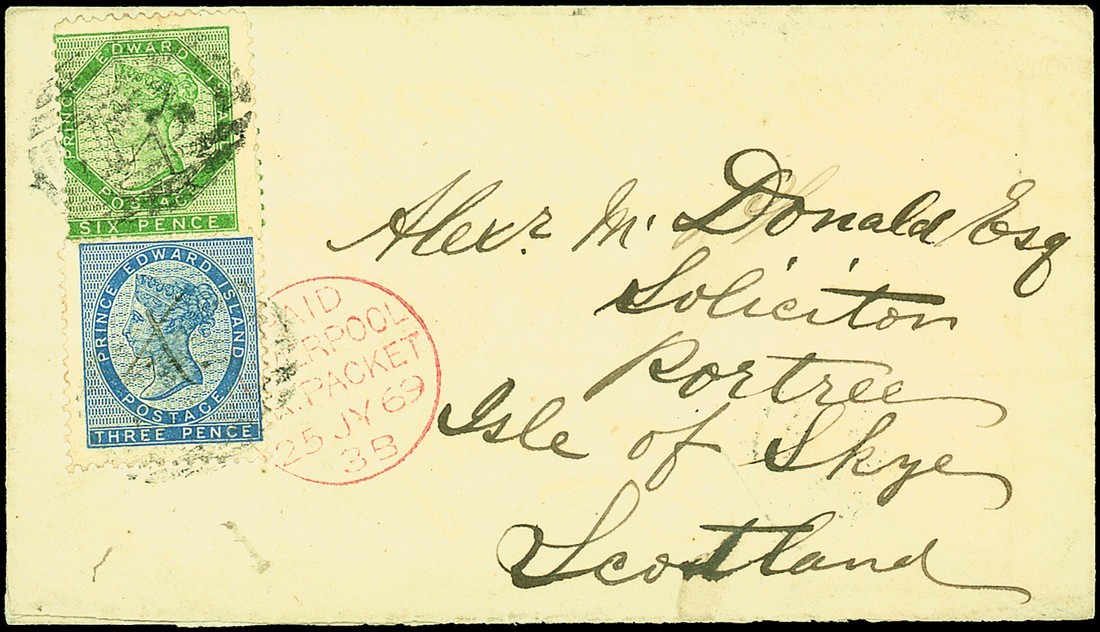 PRINCE EDWARD ISLAND
POSTAGE
SIX PENCE
PRINCE EDWARD ISLAND
POSTAGE
THREE PENCE
PAID
LIVERPOOL
PACKET
25 JY 69
3B
Alexr. Mc Donald Esq
Solicitor
Portree
Isle of Skye
Scotland